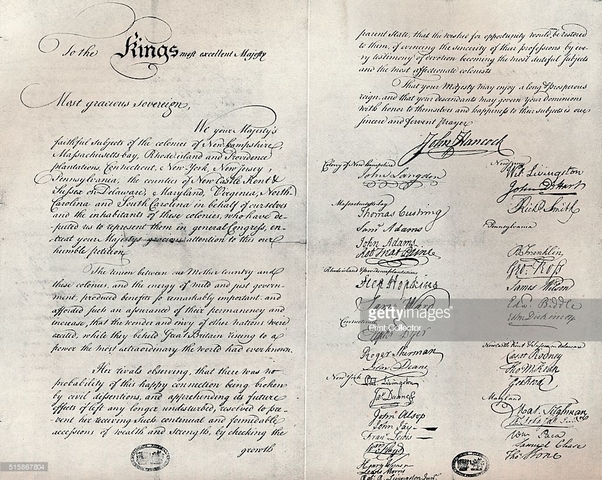 To the Kings most excellent Majesty
Most gracious Sovereign,
We your Majesty's
faithful subjects of the colonies of New hampshire
Massachusetts-bay, Rhode island and Providence
plantations, Connecticut, New-York, New Jersey
Pennsylvania, the counties of New Castle Kent &
Sussex on Delaware, Maryland, Virginia, North
Carolina and South Carolina in behalf of ourselves
and the inhabitants of these colonies, who have de-
puted us to represent them in general Congress, en-
treat your Majestys gracious attention to this our
humble petition.
The union between our Mother Country and
these colonies, and the energy of mild and just govern-
ment, produced benefits so remarkably important and
afforded such an assurance of their permanency and
increase, that the wonder and envy of other nations were
excited, while they beheld Great Britain rising to a
power the most extraordinary the world had ever known.
Her rivals observing, that there was no
probability of this happy connection being broken
by civil dissentions, and apprehending its future
effects if left any longer undisturbed, resolved to pre-
vent her receiving such continual and formidable
accessions of wealth and strength, by checking the
growth
parent State, that the wished for opportunity would be restored
to them, of evincing the sincerity of their professions by eve-
ry testimony of devotion becoming the most dutiful subjects
and the most affectionate colonists
That your Majesty may enjoy a long & prosperous
reign, and that your descendants may govern your dominions
with honor to themselves and happiness to their subjects is our
sincere and fervent prayer
John Hancock
Colony of New hampshire
John Langdon
Massachusetts bay
Thomas Cushing
Saml Adams
John Adams
Robt Treat Paine
Step Hopkins
Sam: Ward
Connecticut
Elipht Dyer
Roger Sherman
Silas Deane
New York
Phil Livingston
Jas Duane
John Alsop
John Jay
Frans Lewis
Wm Floyd
Henry Wisner
Lewis Morris
Wil: Livingston
John D Hart
Richd Smith
Pennsylvania
B Franklin
Geo: Ross
James Wilson
Edwd Biddle
Caesar Rodney
Tho M:Kean
Geo Read
Maryland
Mat Tilghman
Wm Paca
Samuel Chase
Thos Stone
gettyimages
Print Collector
515867804